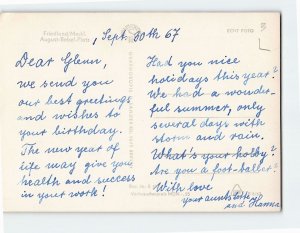 Friedland Meckl.
August-Bebel-Platz
, Sept. 30th 67
ECHT FOTO
Dear Glenn,
we send you
our best greetings
and wishes to
your birthday.
The new year of
life may give you
health and success
in your work!
Had you nice
holidays this year?
We had a wonder-
ful summer, only
several days with
storm and rain.
What's your hobby?
Are you a foot-baller?
With love
your aunts Lotte
and Hanna